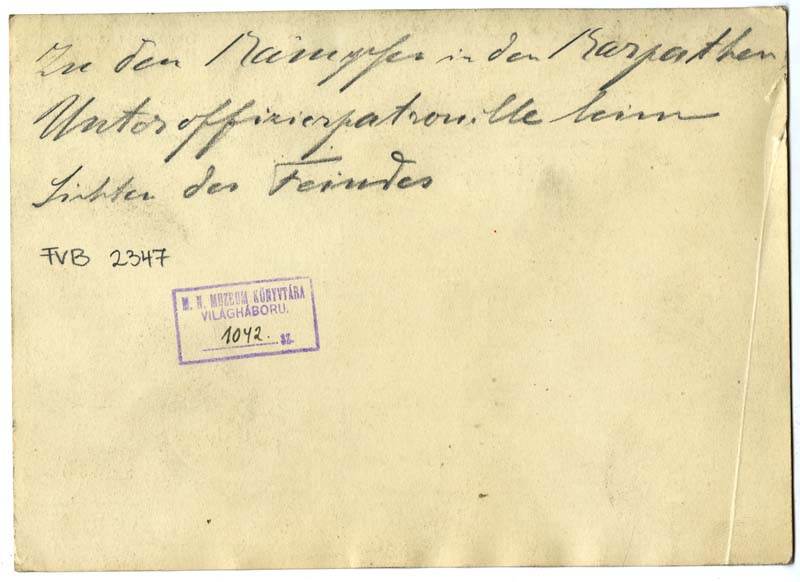 Zu den Kämpfen in den Karpathen
Unteroffizierpatrouille beim
Sichten des Feindes
FVB 2347
M. N. MUZEUM KÖNYVTÁRA
VILÁGHÁBORU.
1042. SZ.